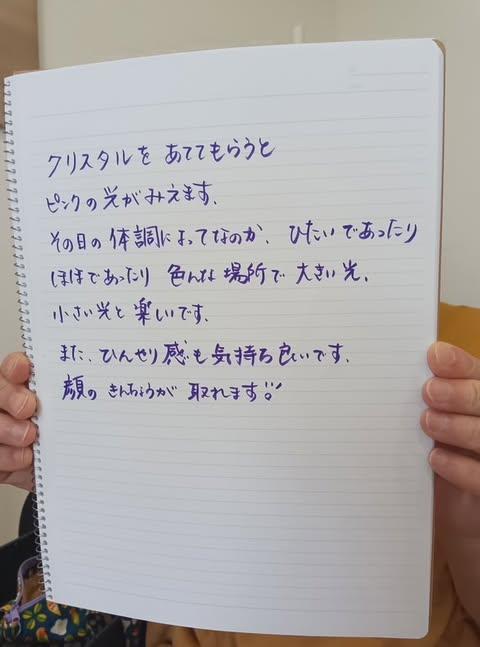 クリスタルを あててもらうと
ピンクの光がみえます、
その日の体調によってなのか、ひたいであったり
ほほであったり 色んな場所で 大きい光、
小さい光と楽しいです、
また、ひんやり感も気持ち良いです、
顔の きんちょうが 取れます!!